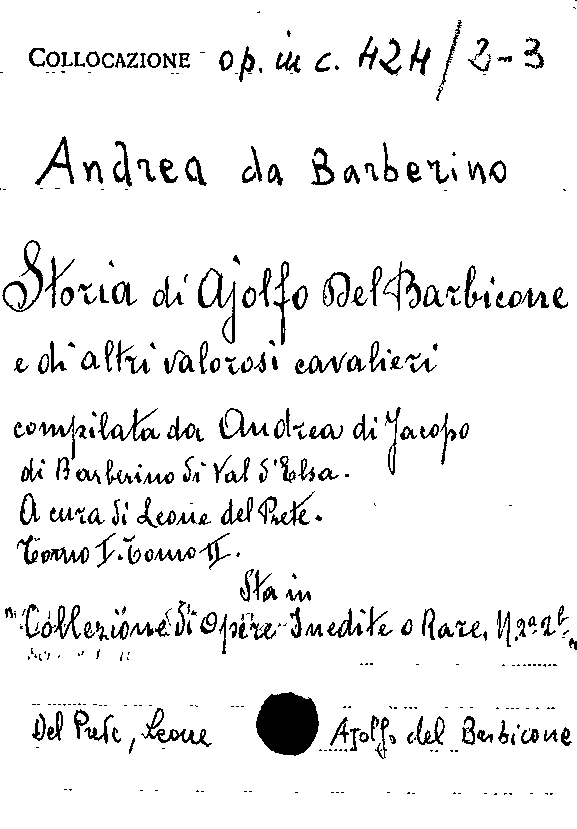 COLLOCAZIONE op. in c. 424/2-3
Andrea da Barberino
Storia di Ajolfo Del Barbicone
e di altri valorosi cavalieri
compilata da Andrea di Jacopo
di Barberino di Val d'Elsa.
A cura di Leone del Prete.
Tomo I. Tomo II.
Sta in
"Collezione di Opere Inedite o Rare,
Del Prete, Leone Ajolfo del Barbicone